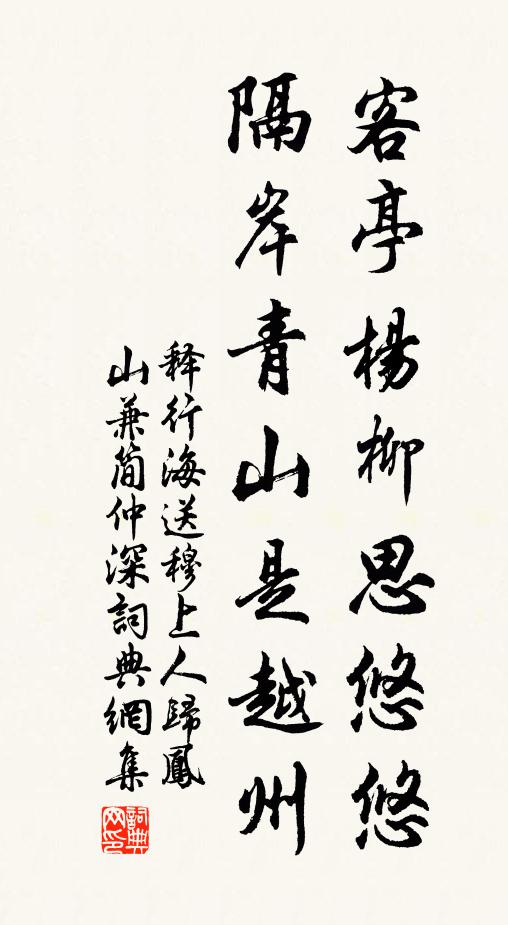 客亭楊柳思悠悠
隔岸青山是越州
释行海送穆上人歸鳳
山兼簡仲深詞典網集
詞典
网印